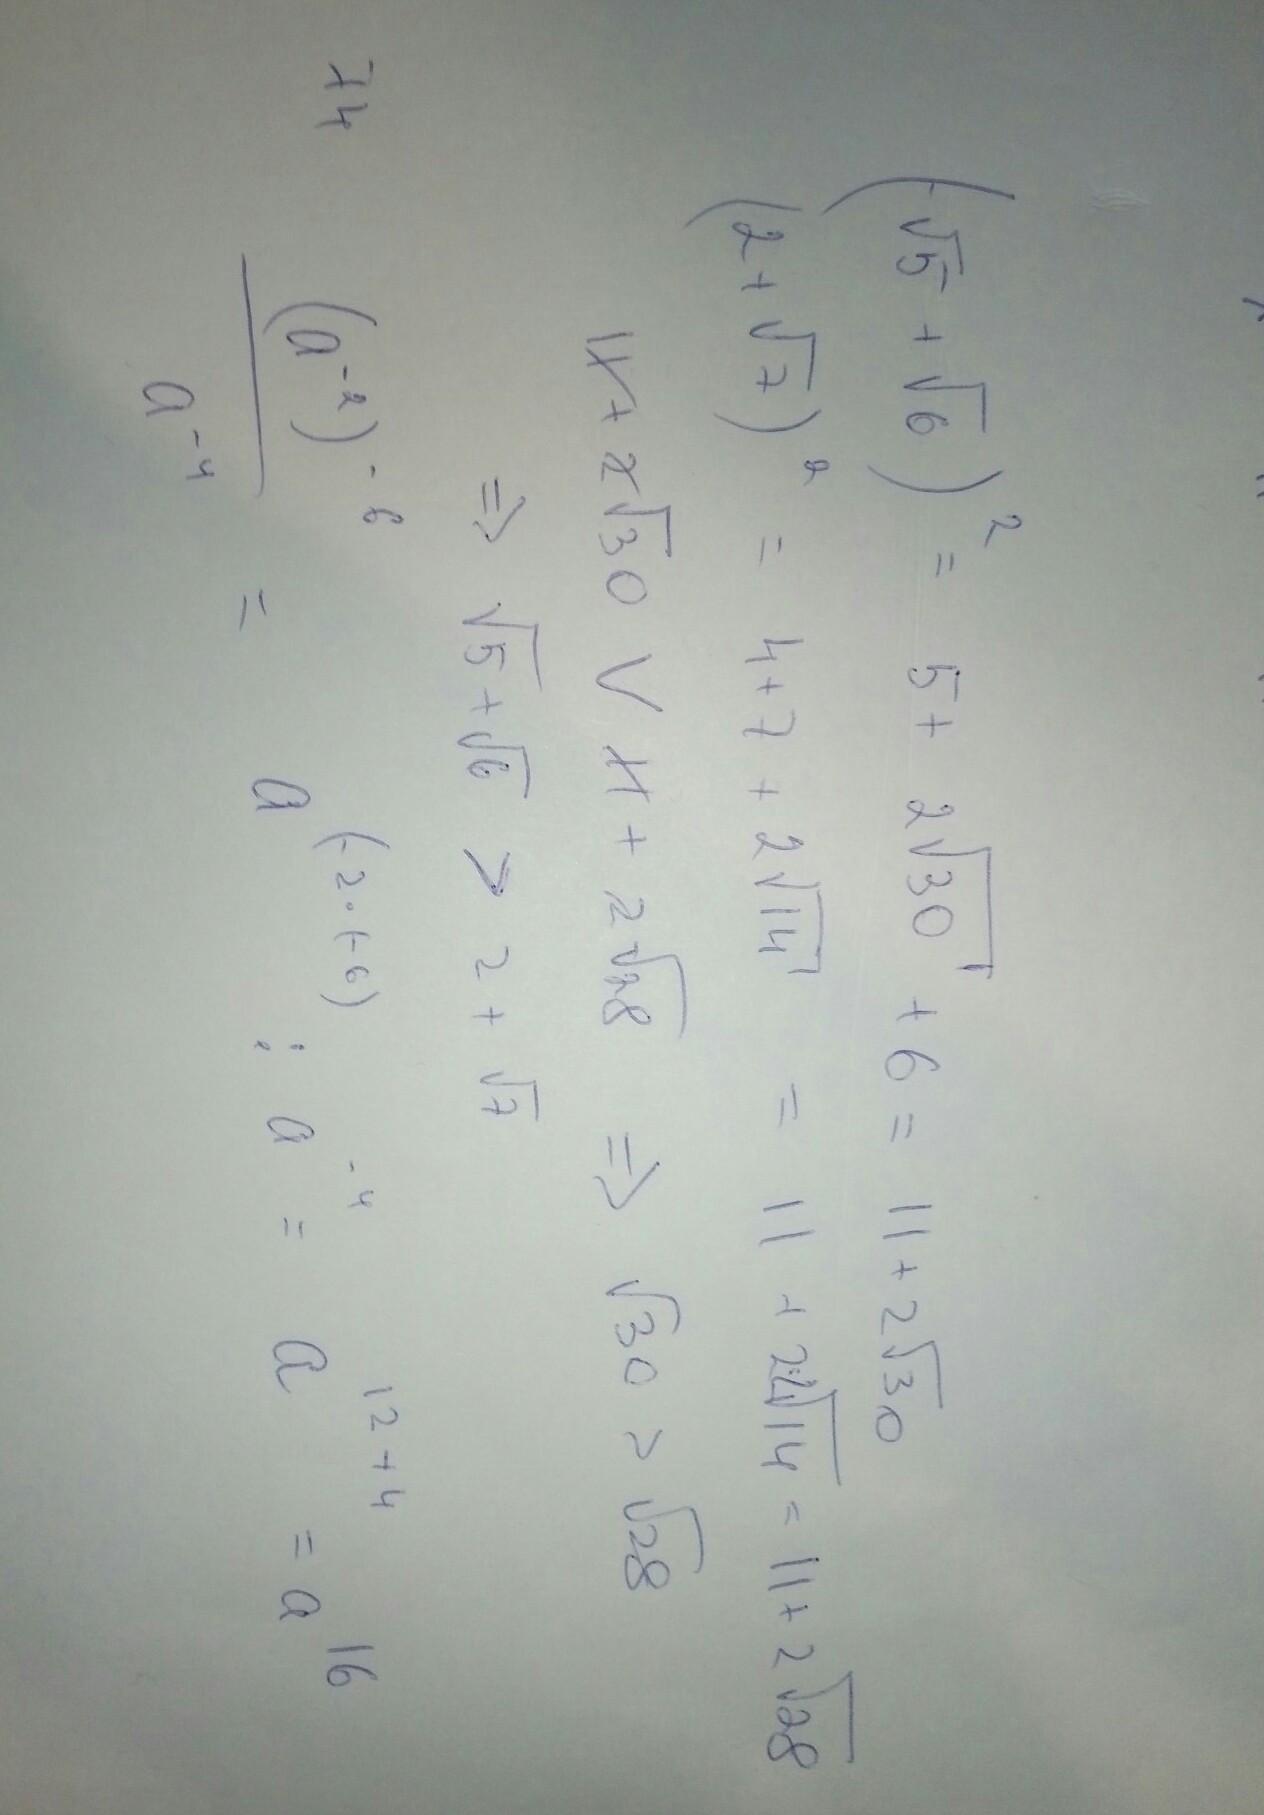 (√5 + √6)² = 5 + 2√30 + 6 = 11 + 2√30
(2 + √7)² = 4 + 7 + 2√14 = 11 + 2·2√14 = 11 + 2√28
11 + 2√30 V 11 + 2√28 ⇒ √30 > √28
⇒ √5 + √6 > 2 + √7
74
(a⁻²)⁻⁶ / a⁻⁴ = a^(-2·(-6)) : a⁻⁴ = a^(12+4) = a¹⁶